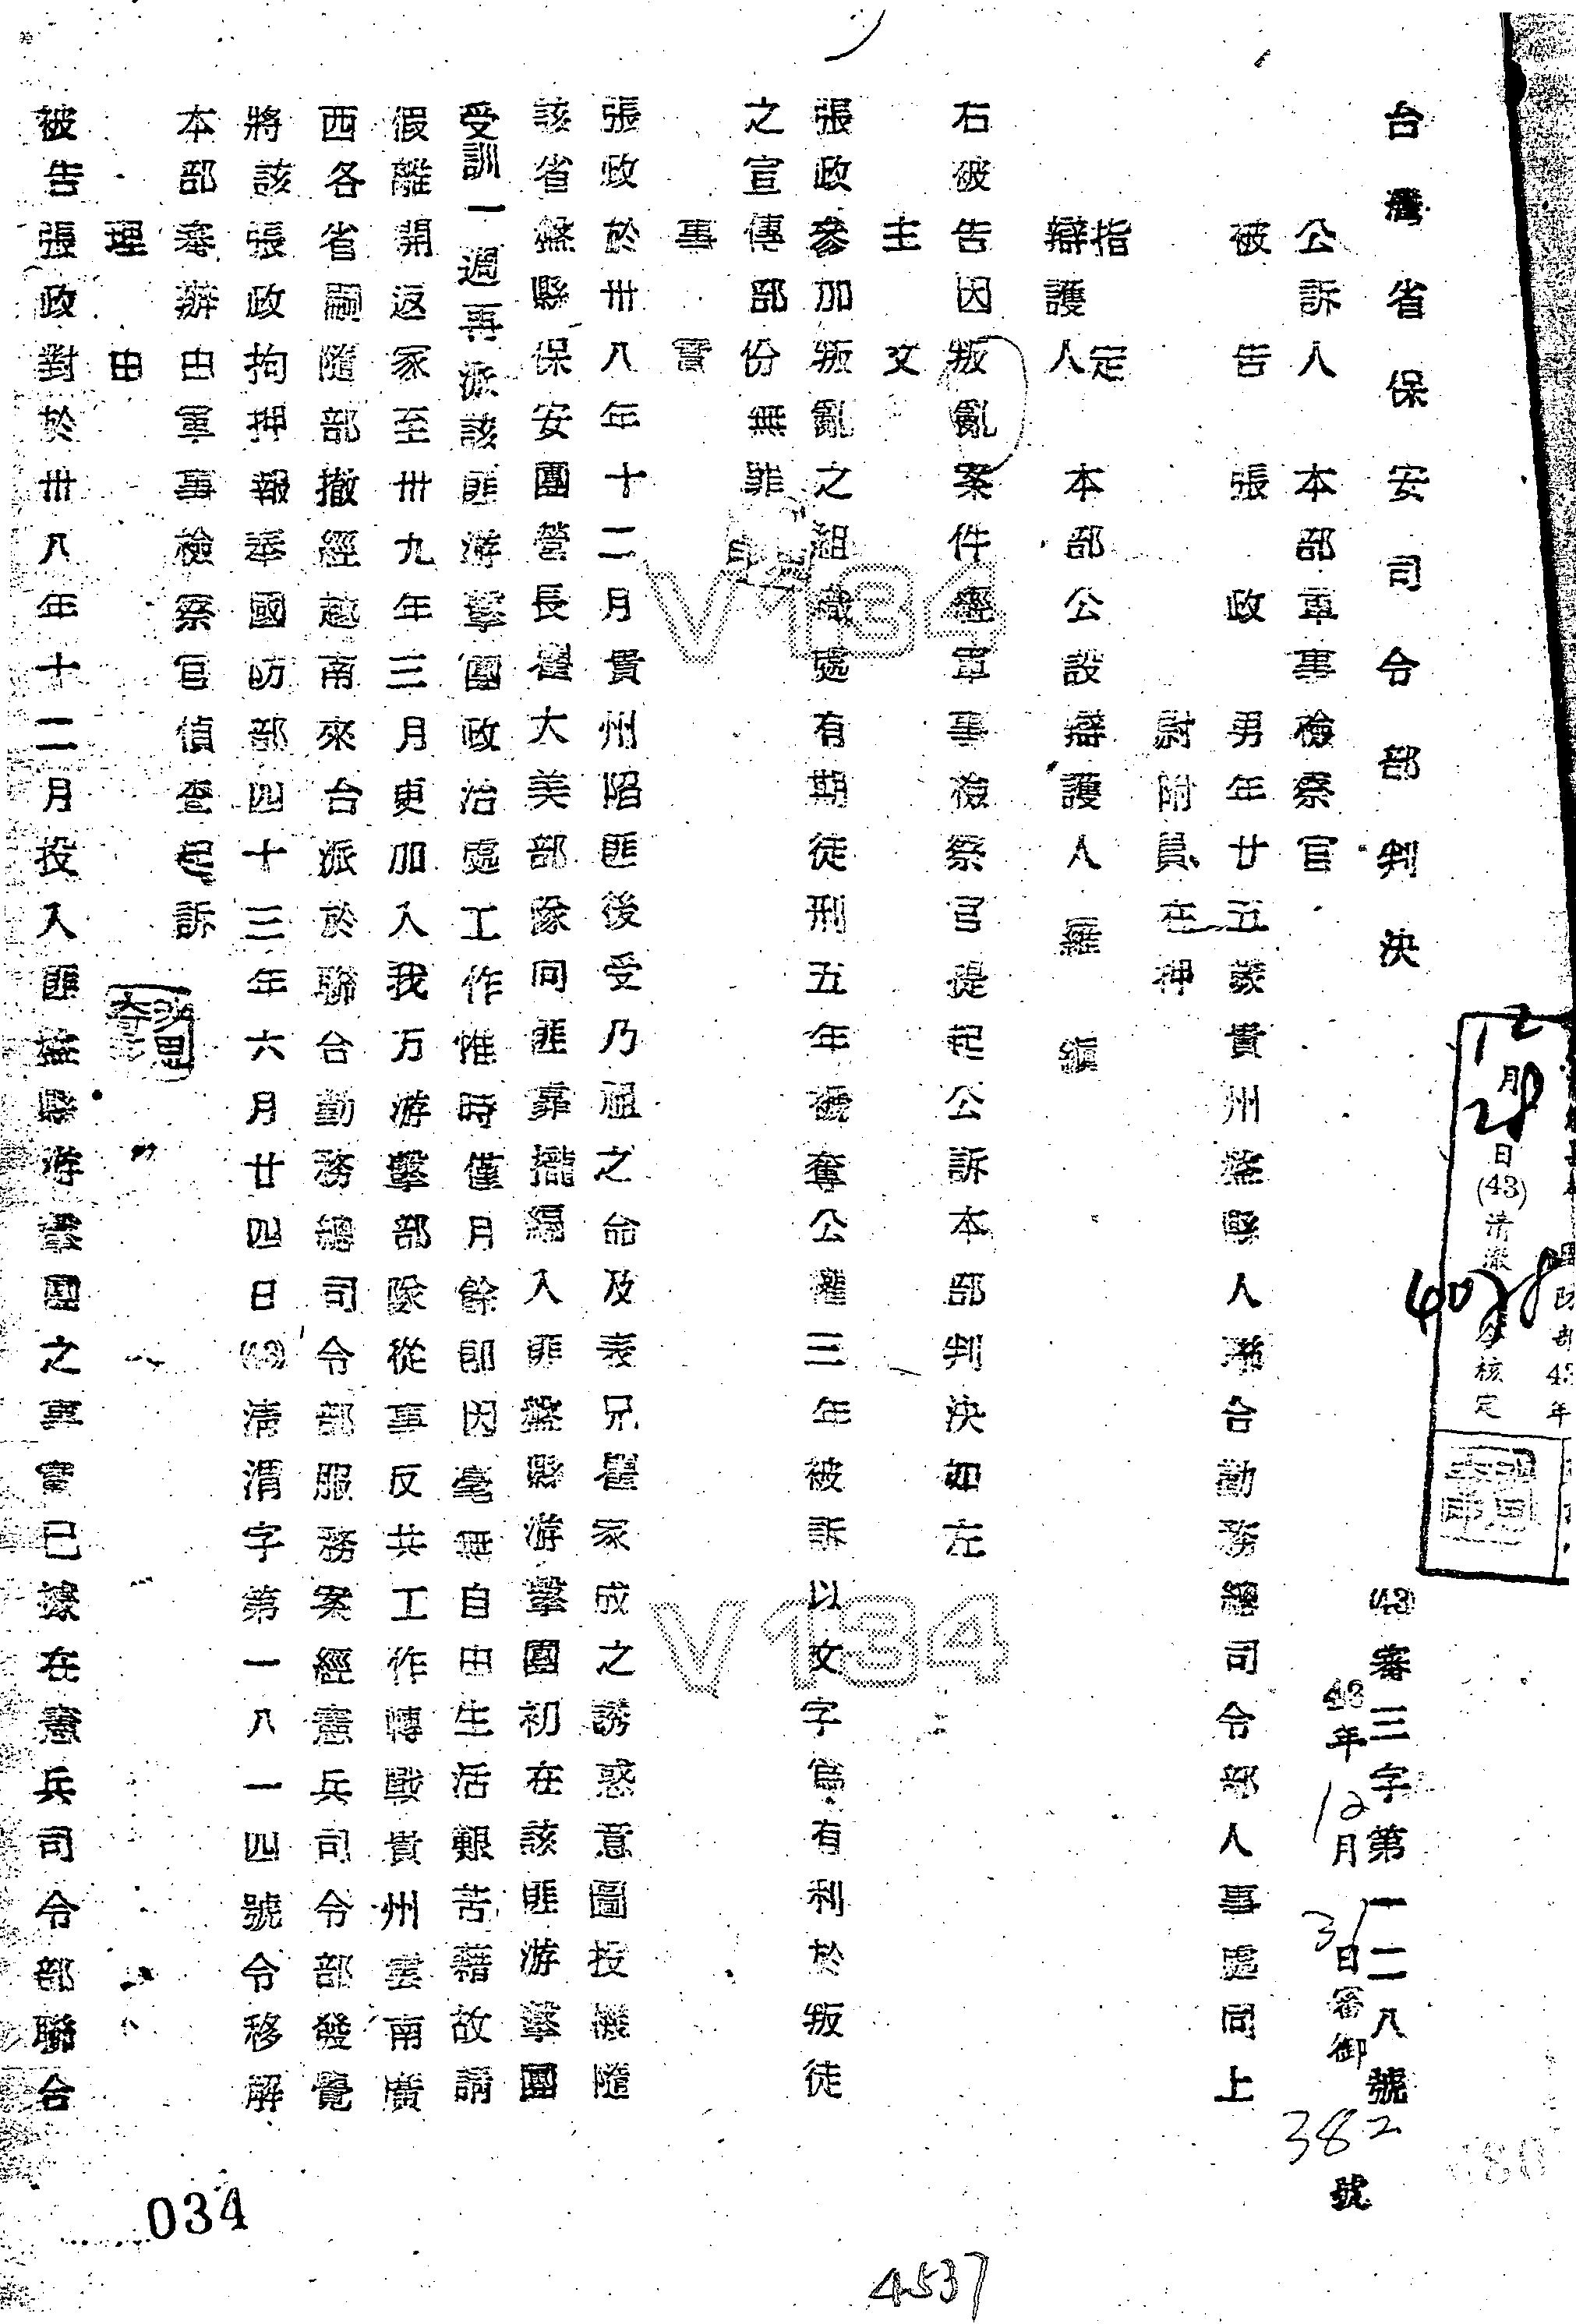 台灣省保安司令部判決
(43)審三字第一二八號
43年12月31日審御382號
公訴人 本部軍事檢察官
被告 張政 男年廿五歲貴州盤縣人聯合勤務總司令部人事處同上
尉附員在押
指定
辯護人 本部公設辯護人羅
右被告因叛亂案件經軍事檢察官提起公訴本部判決如左
主文
張政參加叛亂之組織處有期徒刑五年褫奪公權三年被訴以文字為有利於叛徒
之宣傳部份無罪
事實
張政於卅八年十二月貴州陷匪後受乃祖之命及表兄瞿家成之誘惑意圖投機隨
該省盤縣保安團營長瞿大美部隊向匪靠攏編入匪盤縣游擊團初在該匪游擊團
受訓一週再派該匪游擊團政治處工作惟時僅月餘即因毫無自由生活艱苦藉故請
假離開返家至卅九年三月更加入我方游擊部隊從事反共工作轉戰貴州雲南廣
西各省嗣隨部撤經越南來台派於聯合勤務總司令部服務案經憲兵司令部發覺
將該張政拘押報奉國防部四十三年六月廿四日(43)清渭字第一八一四號令移解
本部審辦由軍事檢察官偵查起訴
理由
被告張政對於卅八年十二月投入匪盤縣游擊團之事實已據在憲兵司令部聯合
12月28日(43)清澈4028令核定
國防部43年
V134
V134
034
4537